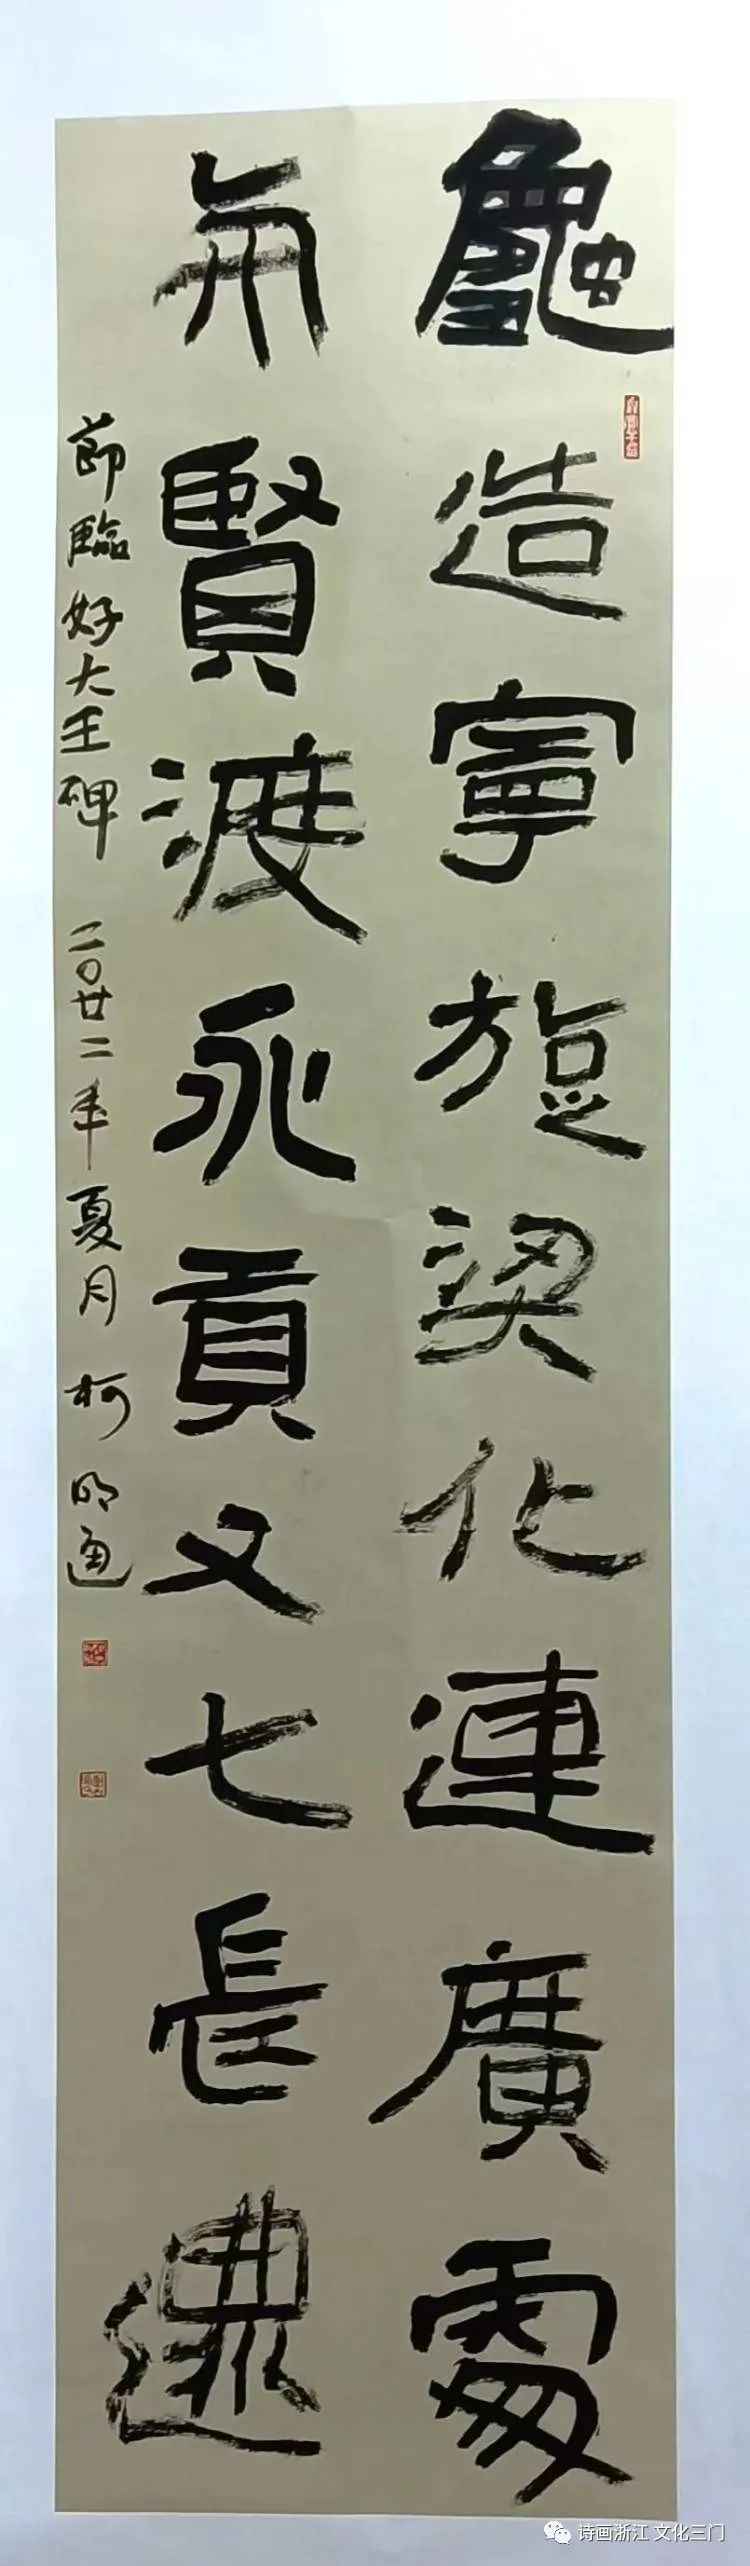 龜造寧旋梁化連廣
賢渡永貢又七長遷
節臨好大王碑 二〇廿二年夏月 柯明通
诗画浙江 文化三门